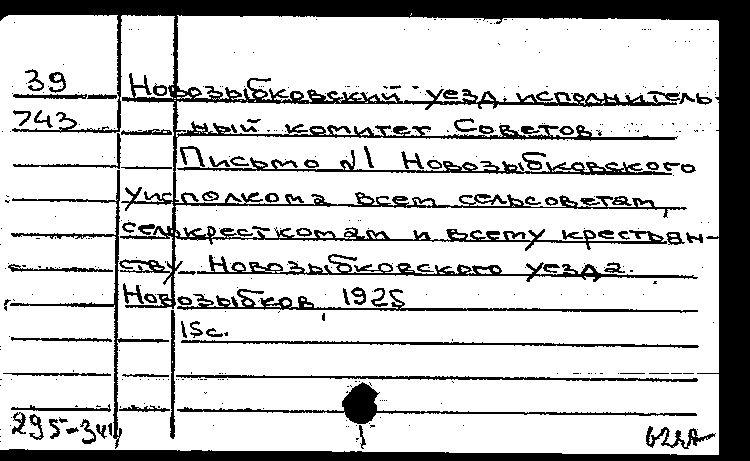 39 Новозыбковский уезд. исполнитель-
743 ный комитет Советов.
Письмо №1 Новозыбковского
уисполкома всем сельсоветам,
селькресткомам и всему крестьян-
ству Новозыбковского уезда.
Новозыбков, 1925
15с.